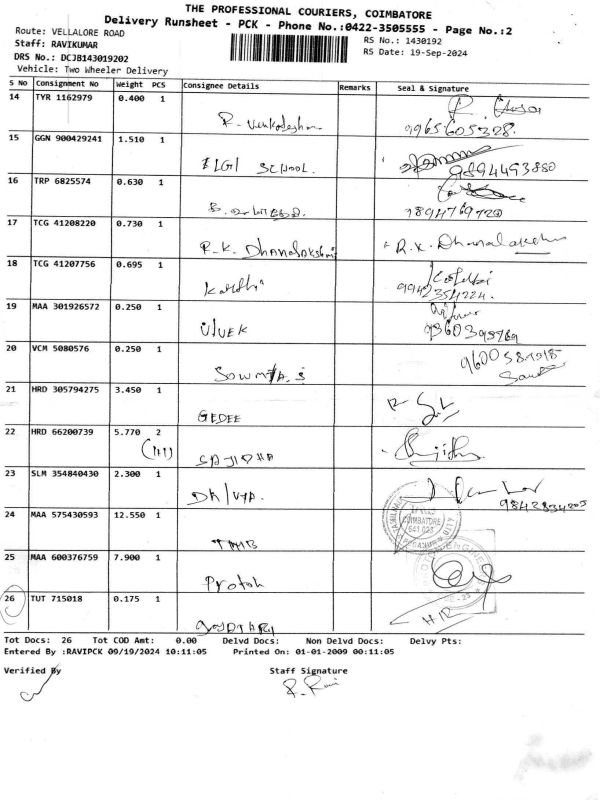 THE PROFESSIONAL COURIERS, COIMBATORE
Delivery Runsheet - PCK - Phone No.:0422-3505555 - Page No.:2
Route: VELLALORE ROAD
RS No.: 1430192
Staff: RAVIKUMAR
RS Date: 19-Sep-2024
DRS No.: DCJB143019202
Vehicle: Two Wheeler Delivery
S No Consignment No Weight PCS Consignee Details Remarks Seal & Signature
14 TYR 1162979 0.400 1
R. Venkadeshm
9965605328.
15 GGN 900429241 1.510 1
ELGI SCHOOL.
9894493880
16 TRP 6825574 0.630 1
7894769720
17 TCG 41208220 0.730 1
R.K. Dhanalakshmi R.K. Dhanalakshmi
18 TCG 41207756 0.695 1
Karthi
9942354224.
19 MAA 301926572 0.250 1
VIVEK
9360395769
20 VCM 5080576 0.250 1
SOWMYA.S
21 HRD 305794275 3.450 1
GEDEE
22 HRD 66200739 5.770 2
(1+1) SAJIDHA
23 SLM 354840430 2.300 1
DHIVYA.
9842834205
24 MAA 575430593 12.550 1
TMB
COIMBATORE
641 023
25 MAA 600376759 7.900 1
Protoh
26 TUT 715018 0.175 1
Tot Docs: 26 Tot COD Amt: 0.00 Delvd Docs: Non Delvd Docs: Delvy Pts:
Entered By :RAVIPCK 09/19/2024 10:11:05 Printed On: 01-01-2009 00:11:05
Verified By Staff Signature
R. Ravi